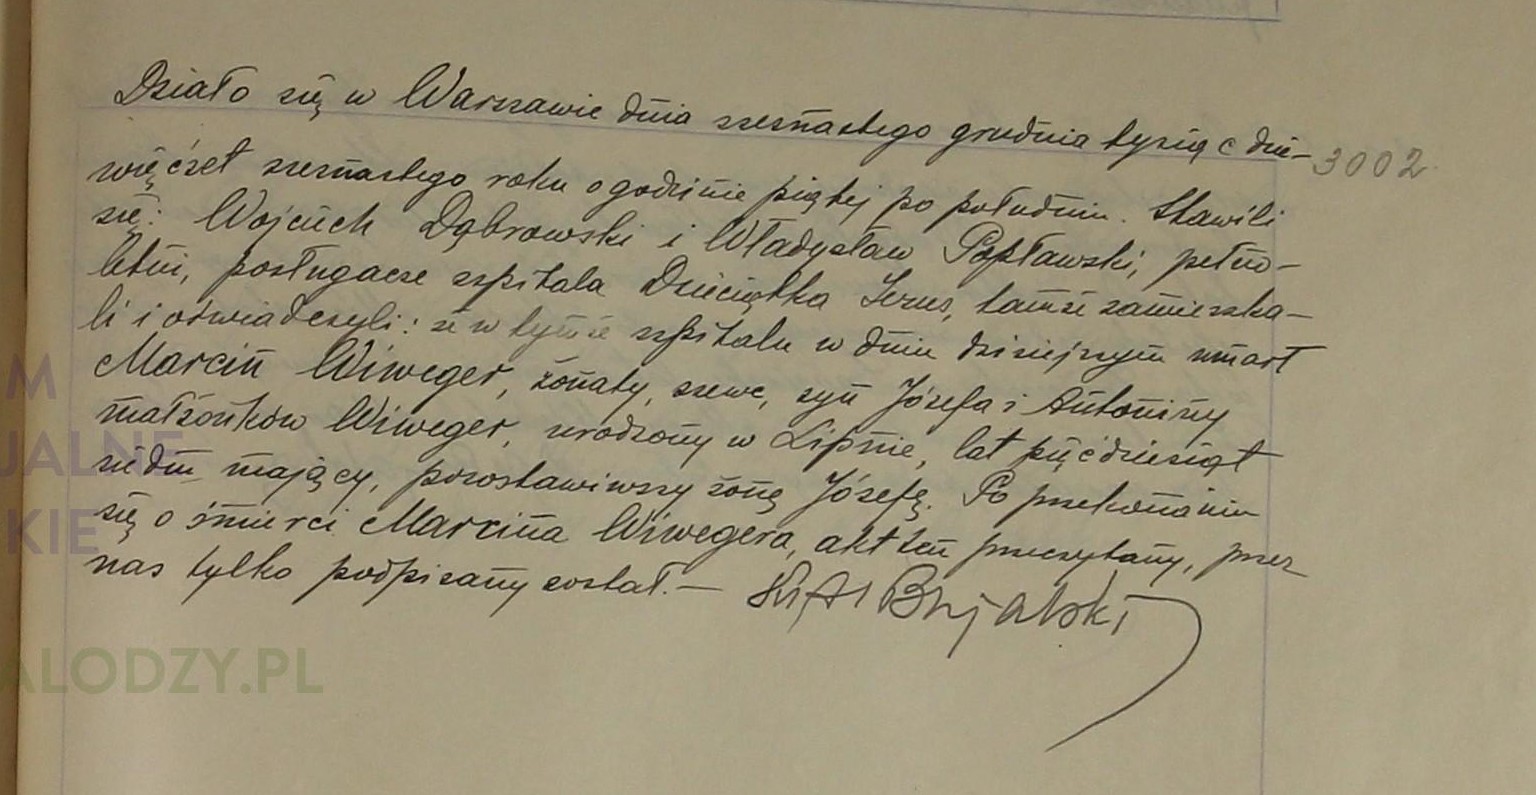 Działo się w Warszawie dnia szesnastego grudnia tysiąc dzie-
3002
więćset szesnastego roku o godzinie piątej po południu. Stawili
się: Wojciech Dąbrowski i Władysław Popławski, pełno-
letni, posługacze szpitala Dzieciątka Jezus, tamże zamieszka-
li i oświadczyli: że w tymże szpitalu w dniu dzisiejszym umarł
Marcin Wiweger, żonaty, szewc, syn Józefa i Antoniny
małżonków Wiweger, urodzony w Lipnie, lat pięćdziesiąt
siedm mający, pozostawiwszy żonę Józefę. Po przekonaniu
się o śmierci Marcina Wiwegera, akt ten przeczytany, przez
nas tylko podpisany został. —
M
JALNE
KIE
ALODZY.PL